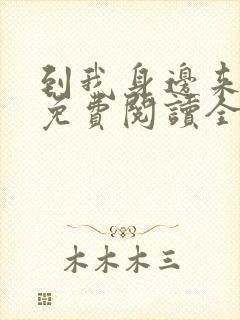 到我身邊來
免費閱讀全
木木木三